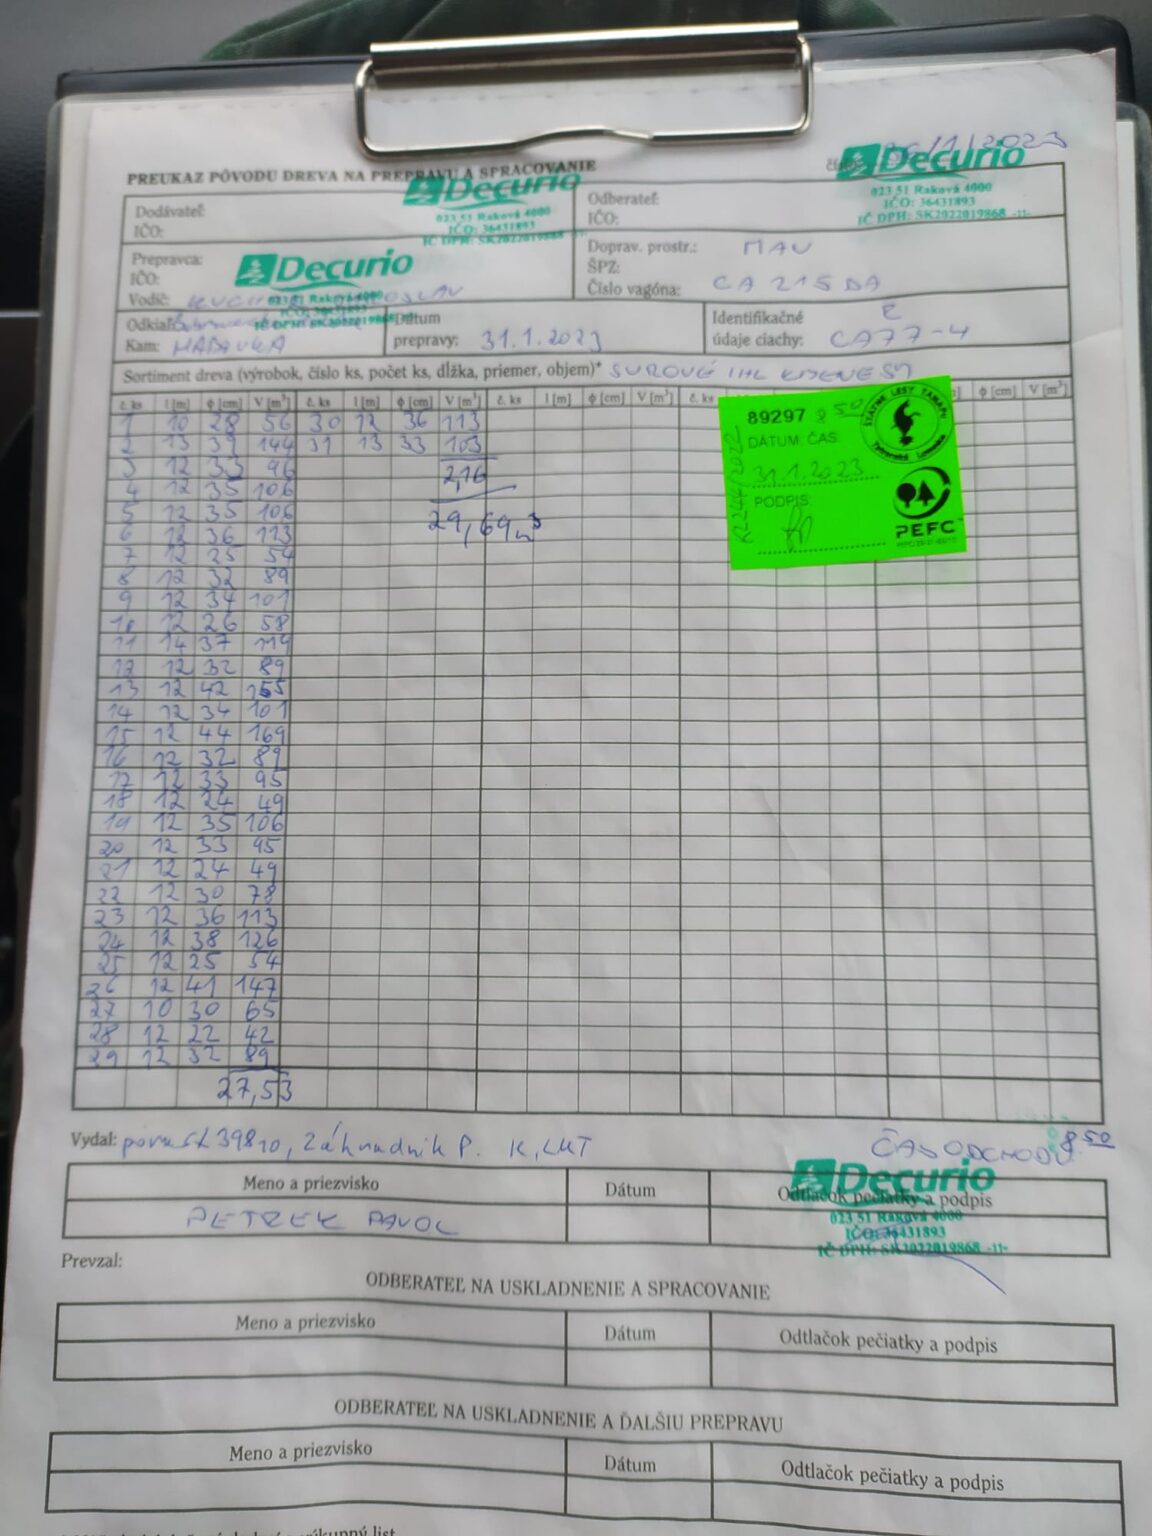 /1/2023
PREUKAZ PÔVODU DREVA NA PREPRAVU A SPRACOVANIE
Decurio
023 51 Raková 4000
IČO: 36431893
IČ DPH: SK2022019868 -11-
Decurio
023 51 Raková 4000
IČO: 36431893
IČ DPH: SK2022019868 -11-
Dodávateľ:
IČO:
Odberateľ:
IČO:
Prepravca:
IČO:
Decurio
Vodič:
Doprav. prostr.: MAN
ŠPZ:
Číslo vagóna: CA 215 DA
Odkiaľ:
Kam:
Dátum
prepravy: 31.1.2023
Identifikačné
údaje ciachy: CA77-4
Sortiment dreva (výrobok, číslo ks, počet ks, dĺžka, priemer, objem)* SUROVÉ IHL KMENE
č. ks l [m] φ [cm] V [m³] č. ks l [m] φ [cm] V [m³] č. ks l [m] φ [cm] V [m³] č. ks φ [cm] V [m³]
1 10 28 56 30 12 36 113
2 13 39 144 31 13 33 103
3 12 33 96 2,16
4 12 35 106
5 12 35 106 29,69 m³
6 12 36 113
7 12 25 54
8 12 32 89
9 12 34 101
10 12 26 58
11 14 37 119
12 12 32 89
13 12 42 155
14 12 34 101
15 12 44 169
16 12 32 89
17 12 33 95
18 12 24 49
19 12 35 106
20 12 33 95
21 12 24 49
22 12 30 78
23 12 36 113
24 12 38 126
25 12 25 54
26 12 41 147
27 10 30 65
28 12 22 42
29 12 32 89
27,53
89297 8 50
DÁTUM, ČAS
31.1.2023
PODPIS
ŠTÁTNE LESY TANAPu
Tatranská Lomnica
PEFC
Vydal: porast 39810, Záhradník P. K, LKT
ČAS ODCHODU 8 50
Meno a priezvisko Dátum Odtlačok pečiatky a podpis
PETREK PAVOL
Decurio
023 51 Raková 4000
IČO: 36431893
IČ DPH: SK2022019868 -11-
Prevzal:
ODBERATEĽ NA USKLADNENIE A SPRACOVANIE
Meno a priezvisko Dátum Odtlačok pečiatky a podpis
ODBERATEĽ NA USKLADNENIE A ĎALŠIU PREPRAVU
Meno a priezvisko Dátum Odtlačok pečiatky a podpis
list